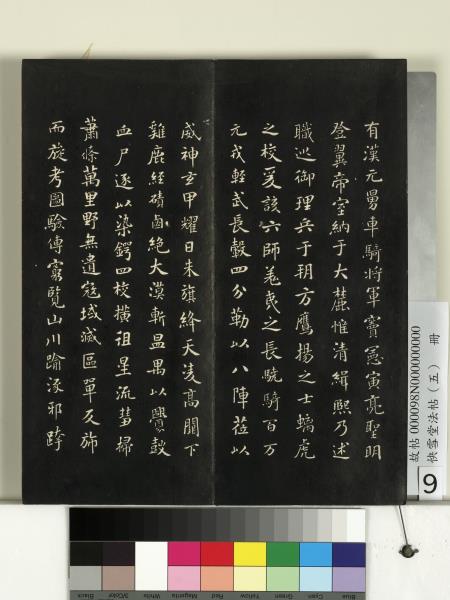 有漢元舅車騎將軍竇憲寅亮聖明
登翼帝室納于大麓惟清緝熙乃述
職巡御理兵于朔方鷹揚之士螭虎
之校爰該六師羌夷之長驍騎百万
元戎輕武長轂四分勒以八陣莅以
威神玄甲耀日朱旗絳天凌高闕下
雞鹿經磧鹵絕大漠斬昷禺以釁鼓
血尸逐以染鍔四校橫徂星流彗掃
蕭條萬里野無遺寇域滅區單反旆
而旋考圖驗傳窮覽山川踰涿邪跨
故帖000098N000000000
快雪堂法帖（五）　冊
9
Blue Cyan Green Yellow Red Magenta White 3/Color Black